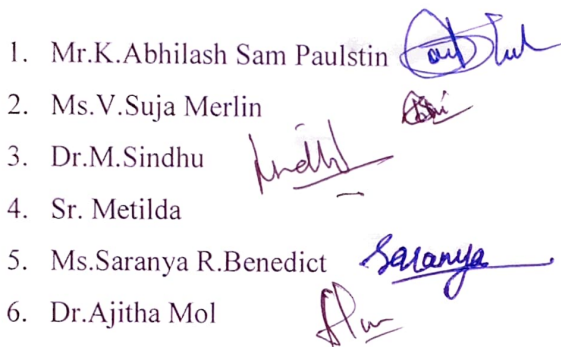 1. Mr.K.Abhilash Sam Paulstin
2. Ms.V.Suja Merlin
3. Dr.M.Sindhu
4. Sr. Metilda
5. Ms.Saranya R.Benedict Saranya
6. Dr.Ajitha Mol